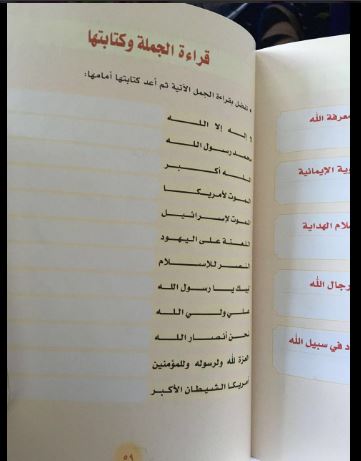 قراءة الجملة وكتابتها
• تفضل بقراءة الجمل الآتية ثم أعد كتابتها أمامها:
لا إله إلا اللـــه
محمد رسول الله
اللـــه أكـــبر
الموت لأمريكـــا
الموت لإسرائـيـل
اللعنـة على اليهود
النصـر للإســلام
لبيك يــا رسول الله
علــي ولــي الله
نحـن أنصــار الله
العزة لله ولرسوله وللمؤمنين
أمريكـا الشيطان الأكبر
٥٩
معرفة الله
الإيمانية
الهداية
رجال الله
في سبيل الله